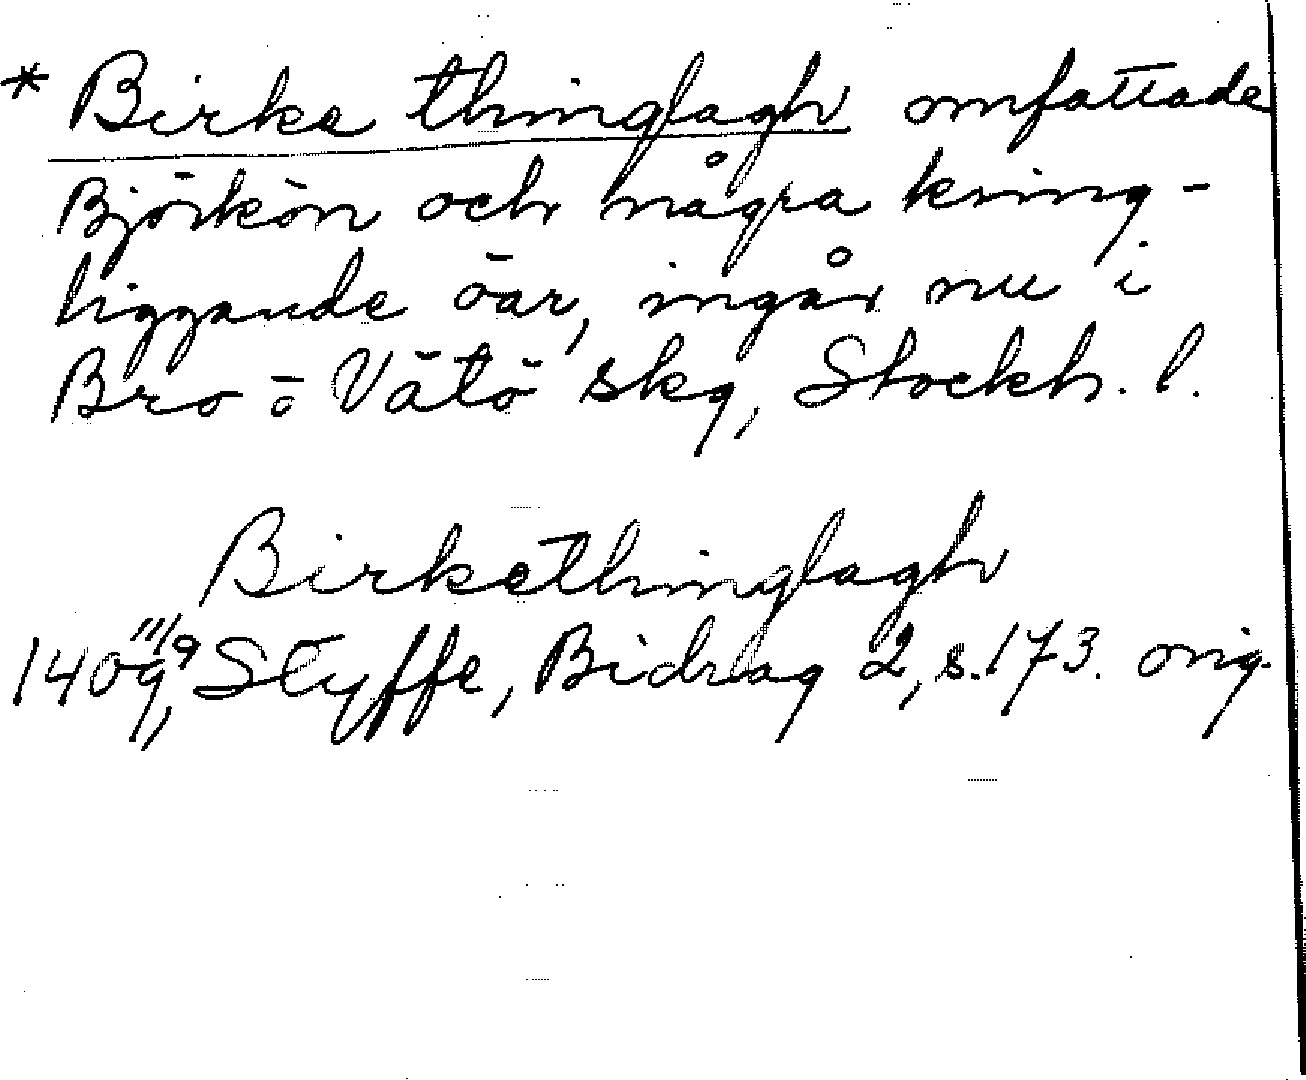 * Birke thinglagh omfattade
Björkön och några kring-
liggande öar, ingår nu i
Bro o Vätö skg, Stockh. l.
Birkethinglagh
1409 11/9, Styffe, Bidrag 2, s. 173. orig.